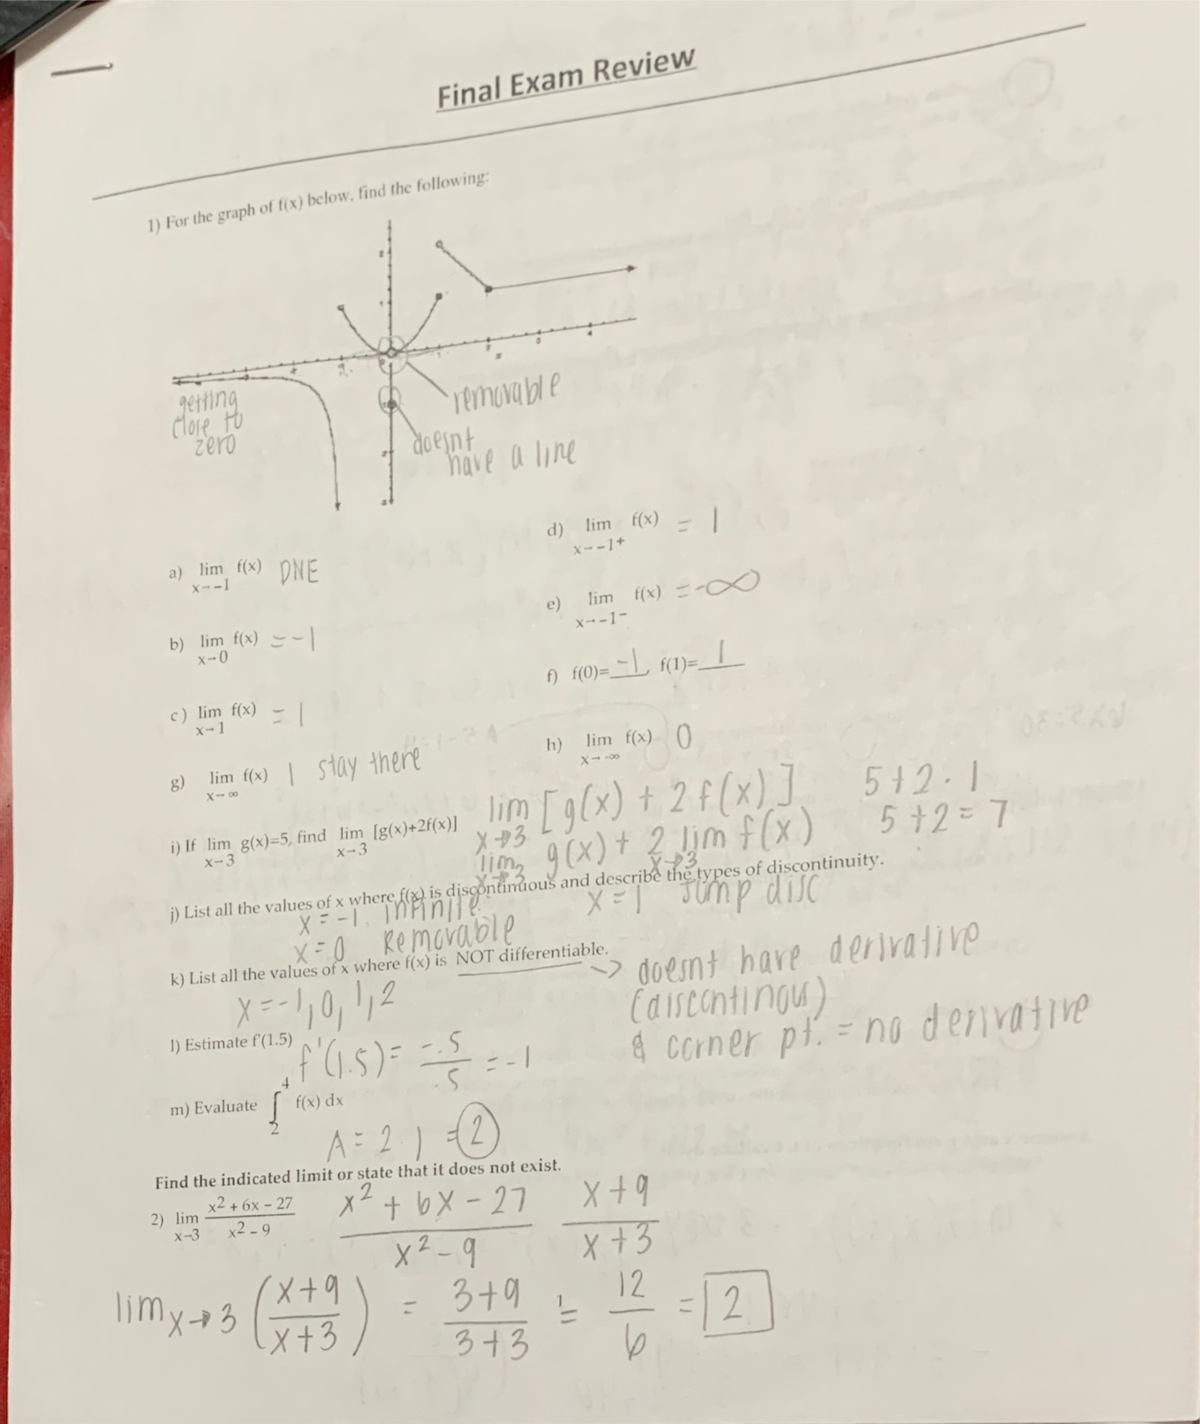 Final Exam Review
1) For the graph of f(x) below, find the following:
getting
close to
zero
removable
doesnt
have a line
a) lim f(x) DNE
x→-1
d) lim f(x) = 1
x→-1+
b) lim f(x) = -1
x→0
e) lim f(x) = -∞
x→-1-
c) lim f(x) = 1
x→1
f) f(0)= -1, f(1)= 1
g) lim f(x) 1 stay there
x→∞
h) lim f(x) 0
x→-∞
i) If lim g(x)=5, find lim [g(x)+2f(x)]
x→3 x→3
lim [g(x) + 2f(x)] 5+2·1
x→3
lim g(x) + 2 lim f(x) 5+2=7
x→3 x→3
j) List all the values of x where f(x) is discontinuous and describe the types of discontinuity.
x = -1, infinite x=1 Jump disc
x=0 Removable
k) List all the values of x where f(x) is NOT differentiable.
→ doesnt have derivative
(discontinous)
& corner pt. = no derivative
x=-1,0,1,2
l) Estimate f'(1.5) f'(1.5) = -.5/.5 = -1
m) Evaluate ∫ 4 2 f(x) dx
A = 2·1 = 2
Find the indicated limit or state that it does not exist.
2) lim x→3 (x² + 6x – 27)/(x² – 9) (x² + 6x – 27)/(x² – 9) (x+9)/(x+3)
lim x→3 ((x+9)/(x+3)) = (3+9)/(3+3) = 12/6 = 2